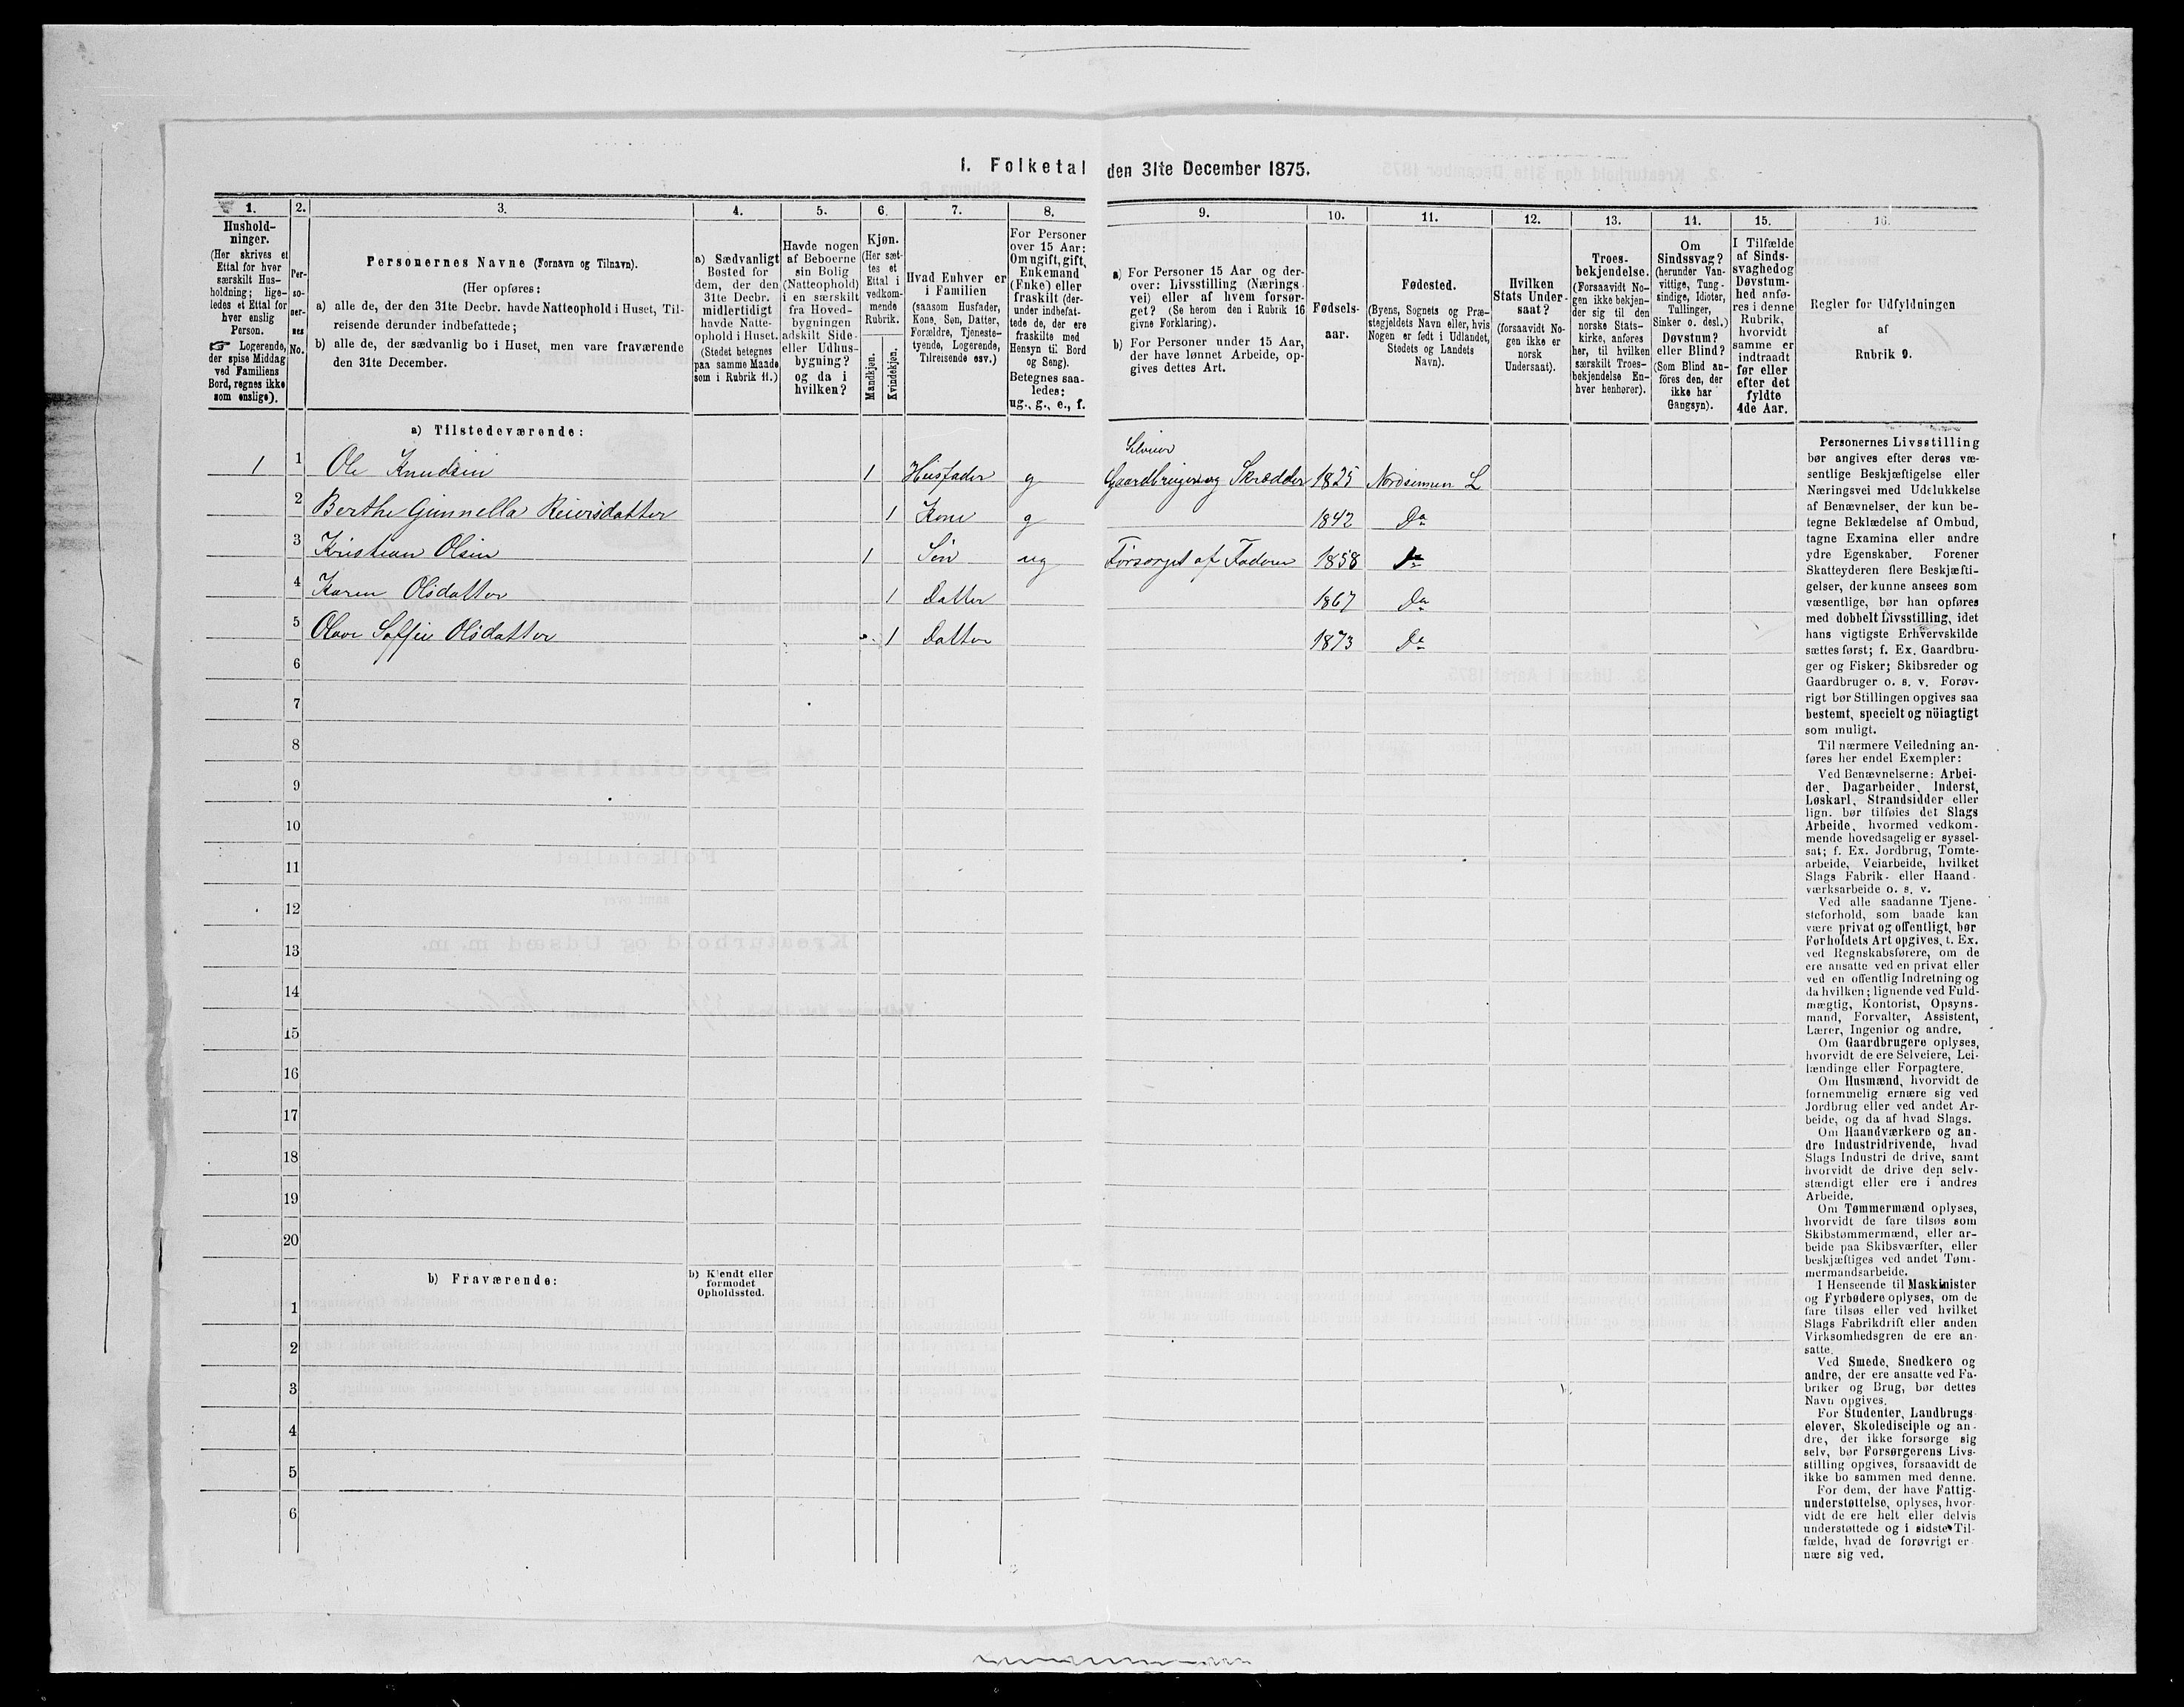 I. Folketal den 31te December 1875.
1.
2.
3.
4.
5.
6.
7.
8.
9.
10.
11.
12.
13.
14.
15.
16.
Hushold-
ninger.
(Her skrives et
Ettal for hver
særskilt Hus-
holdning; lige-
ledes et Ettal for
hver enslig
Person.
☞ Logerende,
der spise Middag
ved Familiens
Bord, regnes ikke
som enslige).
Per-
so-
ner-
nes
No.
Personernes Navne (Fornavn og Tilnavn).
(Her opføres:
a) alle de, der den 31te Decbr. havde Natteophold i Huset, Til-
reisende derunder indbefattede;
b) alle de, der sædvanlig bo i Huset, men vare fraværende
den 31te December.
a) Sædvanligt
Bosted for
dem, der den
31te Decbr.
midlertidigt
havde Natte-
ophold i Huset.
(Stedet betegnes
paa samme Maade
som i Rubrik 11.)
Havde nogen
af Beboerne
sin Bolig
(Natteophold)
i en særskilt
fra Hoved-
bygningen
adskilt Side-
eller Udhus-
bygning?
og da i
hvilken?
Kjøn.
(Her sæt-
tes et
Ettal i
vedkom-
mende
Rubrik.
Mandkjøn.
Kvindekjøn.
Hvad Enhver er
i Familien
(saasom Husfader,
Kone, Søn, Datter,
Forældre, Tjeneste-
tyende, Logerende,
Tilreisende osv.)
For Personer
over 15 Aar:
Om ugift, gift,
Enkemand
(Enke) eller
fraskilt (der-
under indbefat-
tede de, der ere
fraskilte med
Hensyn til Bord
og Seng).
Betegnes saa-
ledes:
ug., g., e., f.
a) For Personer 15 Aar og der-
over: Livsstilling (Nærings-
vei) eller af hvem forsør-
get? (Se herom den i Rubrik 16
givne Forklaring).
b) For Personer under 15 Aar,
der have lønnet Arbeide, op-
gives dettes Art.
Fødsels-
aar.
Fødested.
(Byens, Sognets og Præ-
stegjeldets Navn eller, hvis
Nogen er født i Udlandet,
Stedets og Landets
Navn).
Hvilken
Stats Under-
saat?
(forsaavidt No-
gen ikke er
norsk
Undersaat).
Troes-
bekjendelse.
(Forsaavidt No-
gen ikke bekjen-
der sig til den
norske Stats-
kirke, anføres
her, til hvilken
særskilt Troes-
bekjendelse En-
hver henhører).
Om
Sindssvag?
(herunder Van-
vittige, Tung-
sindige, Idioter,
Tullinger,
Sinker o. desl.)
Døvstum?
eller Blind?
(Som Blind an-
føres den, der
ikke har
Gangsyn).
I Tilfælde
af Sinds-
svaghed og
Døvstum-
hed anfø-
res i denne
Rubrik,
hvorvidt
samme er
indtraadt
før eller
efter det
fyldte
4de Aar.
Regler for Udfyldningen
af
Rubrik 9.
a) Tilstedeværende:
Selveier
1 1 Ole Knudsen 1 Husfader g Gaardbruger og Skrædder 1825 Nordsinnen L
2 Berthe Gunnella Reiersdatter 1 Kone g 1842 Do
3 Kristian Olsen 1 Søn ug Forsørget af Faderen 1858 Do
4 Karen Olsdatter 1 Datter 1867 Do
5 Olave Soffie Olsdatter 1 Datter 1873 Do
6
7
8
9
10
11
12
13
14
15
16
17
18
19
20
b) Fraværende:
b) Kjendt eller
formodet
Opholdssted.
1
2
3
4
5
6
Personernes Livsstilling
bør angives efter deres væ-
sentlige Beskjæftigelse eller
Næringsvei med Udelukkelse
af Benævnelser, der kun be-
tegne Beklædelse af Ombud,
tagne Examina eller andre
ydre Egenskaber. Forener
Skatteyderen flere Beskjæfti-
gelser, der kunne ansees som
væsentlige, bør han opføres
med dobbelt Livsstilling, idet
hans vigtigste Erhvervskilde
sættes først; f. Ex. Gaardbru-
ger og Fisker; Skibsreder og
Gaardbruger o. s. v. Forøv-
rigt bør Stillingen opgives saa
bestemt, specielt og nöiagtigt
som muligt.
Til nærmere Veiledning an-
føres her endel Exempler:
Ved Benævnelserne: Arbei-
der, Dagarbeider, Inderst,
Løskarl, Strandsidder eller
lign. bør tilføies det Slags
Arbeide, hvormed vedkom-
mende hovedsagelig er syssel-
sat; f. Ex. Jordbrug, Tomte-
arbeide, Veiarbeide, hvilket
Slags Fabrik- eller Haand-
værksarbeide o. s. v.
Ved alle saadanne Tjene-
steforhold, som baade kan
være privat og offentligt, bør
Forholdets Art opgives, t. Ex.
ved Regnskabsførere, om de
ere ansatte ved en privat eller
ved en offentlig Indretning og
da hvilken; lignende ved Fuld-
mægtig, Kontorist, Opsyns-
mand, Forvalter, Assistent,
Lærer, Ingeniør og andre.
Om Gaardbrugere oplyses,
hvorvidt de ere Selveiere, Lei-
lændinge eller Forpagtere.
Om Husmænd, hvorvidt de
fornemmelig ernære sig ved
Jordbrug eller ved andet Ar-
beide, og da af hvad Slags.
Om Haandværkere og an-
dre Industridrivende, hvad
Slags Industri de drive, samt
hvorvidt de drive den selv-
stændigt eller ere i andres
Arbeide.
Om Tømmermænd oplyses,
hvorvidt de fare tilsøs som
Skibstømmermænd, eller ar-
beide paa Skibsværfter, eller
beskjæftiges ved andet Tøm-
mermandsarbeide.
I Henseende til Maskinister
og Fyrbødere oplyses, om de
fare tilsøs eller ved hvilket
Slags Fabrikdrift eller anden
Virksomhedsgren de ere an-
satte.
Ved Smede, Snedkere og
andre, der ere ansatte ved Fa-
briker og Brug, bør dettes
Navn opgives.
For Studenter, Landbrugs-
elever, Skoledisciple og an-
dre, der ikke forsørge sig
selv, bør Forsørgerens Livs-
stilling opgives, forsaavidt de
ikke bo sammen med denne.
For dem, der have Fattig-
understøttelse, oplyses, hvor-
vidt de ere helt eller delvis
understøttede og i sidste Til-
fælde, hvad de forøvrigt er-
nære sig ved.